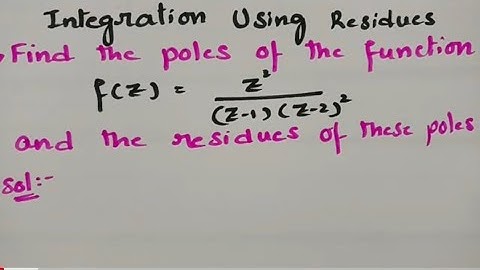 Integration Using Residues
Find the poles of the function
f(z) = z² / (z-1) (z-2)²
and the residues of these poles
Sol:-